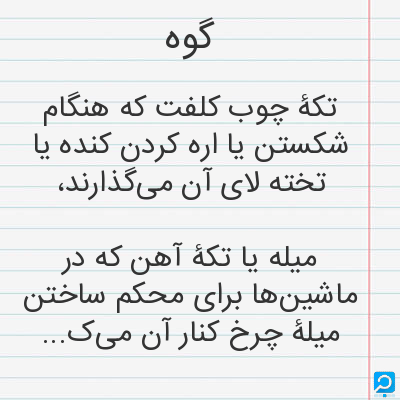 گوه
تکهٔ چوب کلفت که هنگام
شکستن یا اره کردن کنده یا
تخته لای آن می‌گذارند،
میله یا تکهٔ آهن که در
ماشین‌ها برای محکم ساختن
میلهٔ چرخ کنار آن می‌ک...